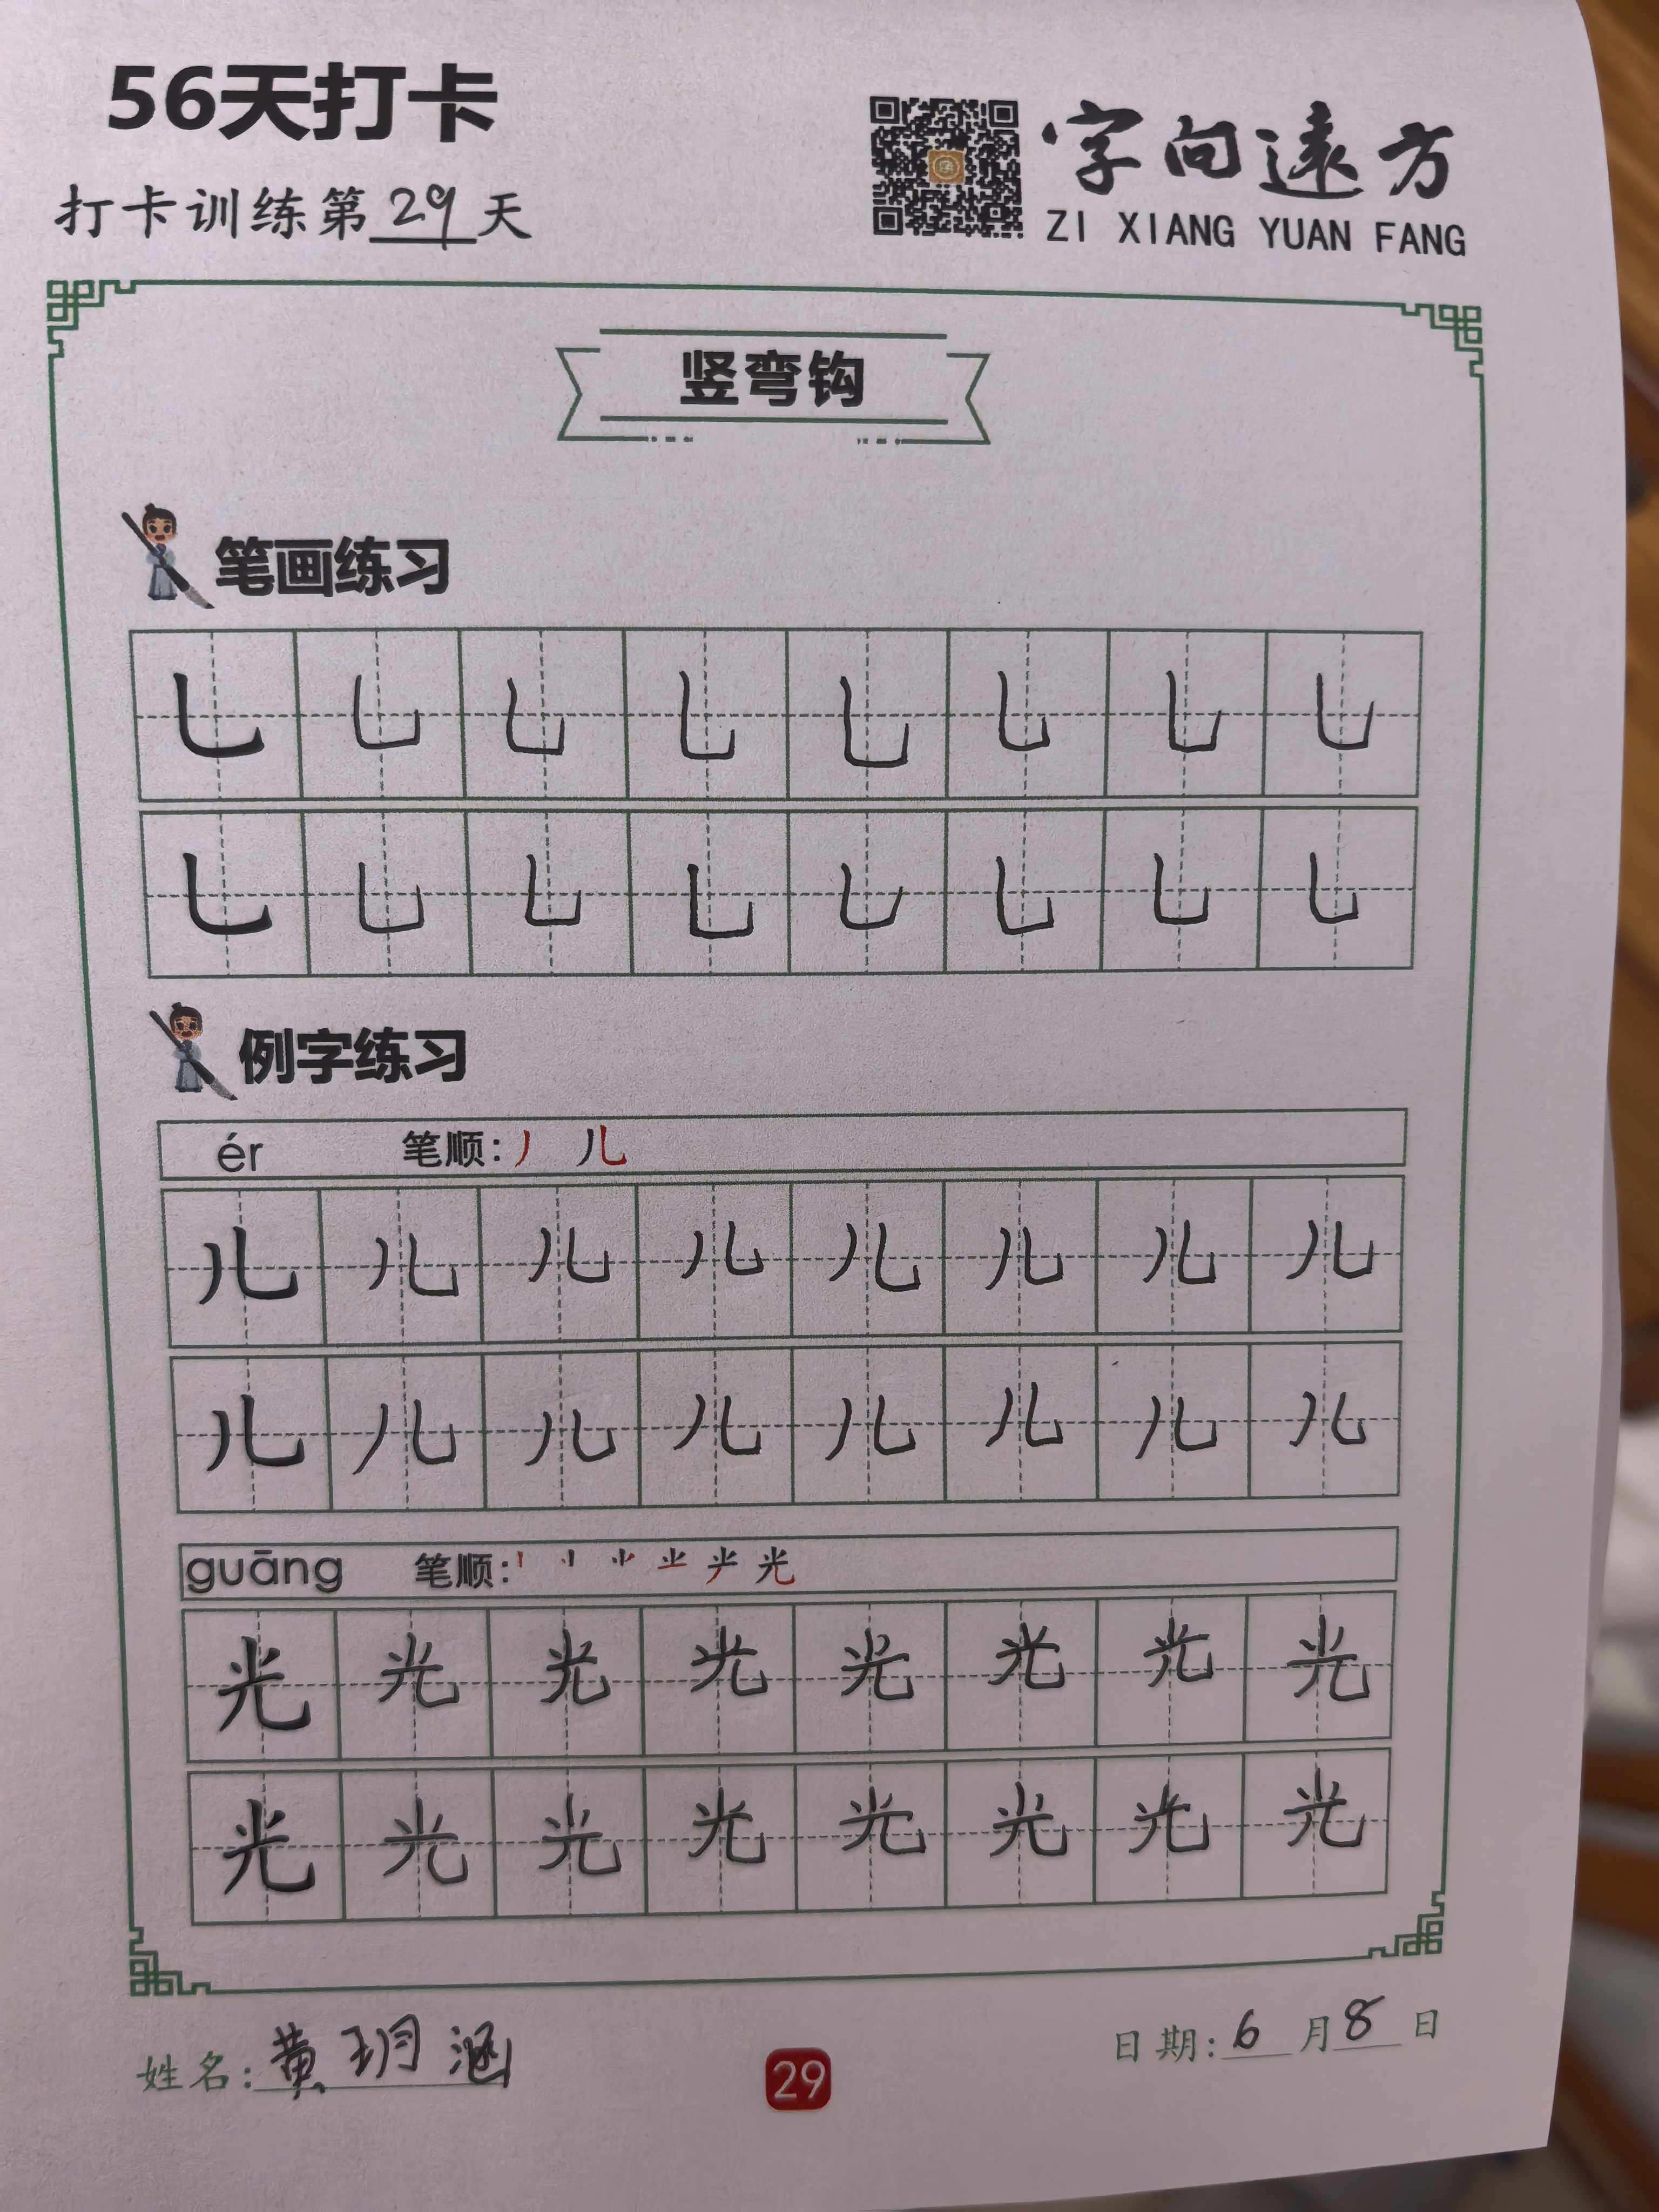 56天打卡
打卡训练第29天
字向遠方
ZI XIANG YUAN FANG
竖弯钩
笔画练习
乚 乚 乚 乚 乚 乚 乚 乚
乚 乚 乚 乚 乚 乚 乚 乚
例字练习
ér 笔顺: 丿 儿
儿 儿 儿 儿 儿 儿 儿 儿
儿 儿 儿 儿 儿 儿 儿 儿
guāng 笔顺: 光
光 光 光 光 光 光 光 光
光 光 光 光 光 光 光 光
姓名: 黄玥涵
29
日期: 6月8日